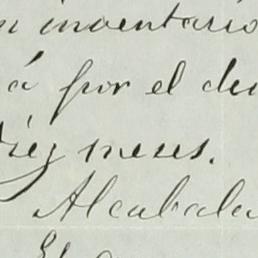 inventario
á por el de
diez meses.
Alcabala
El